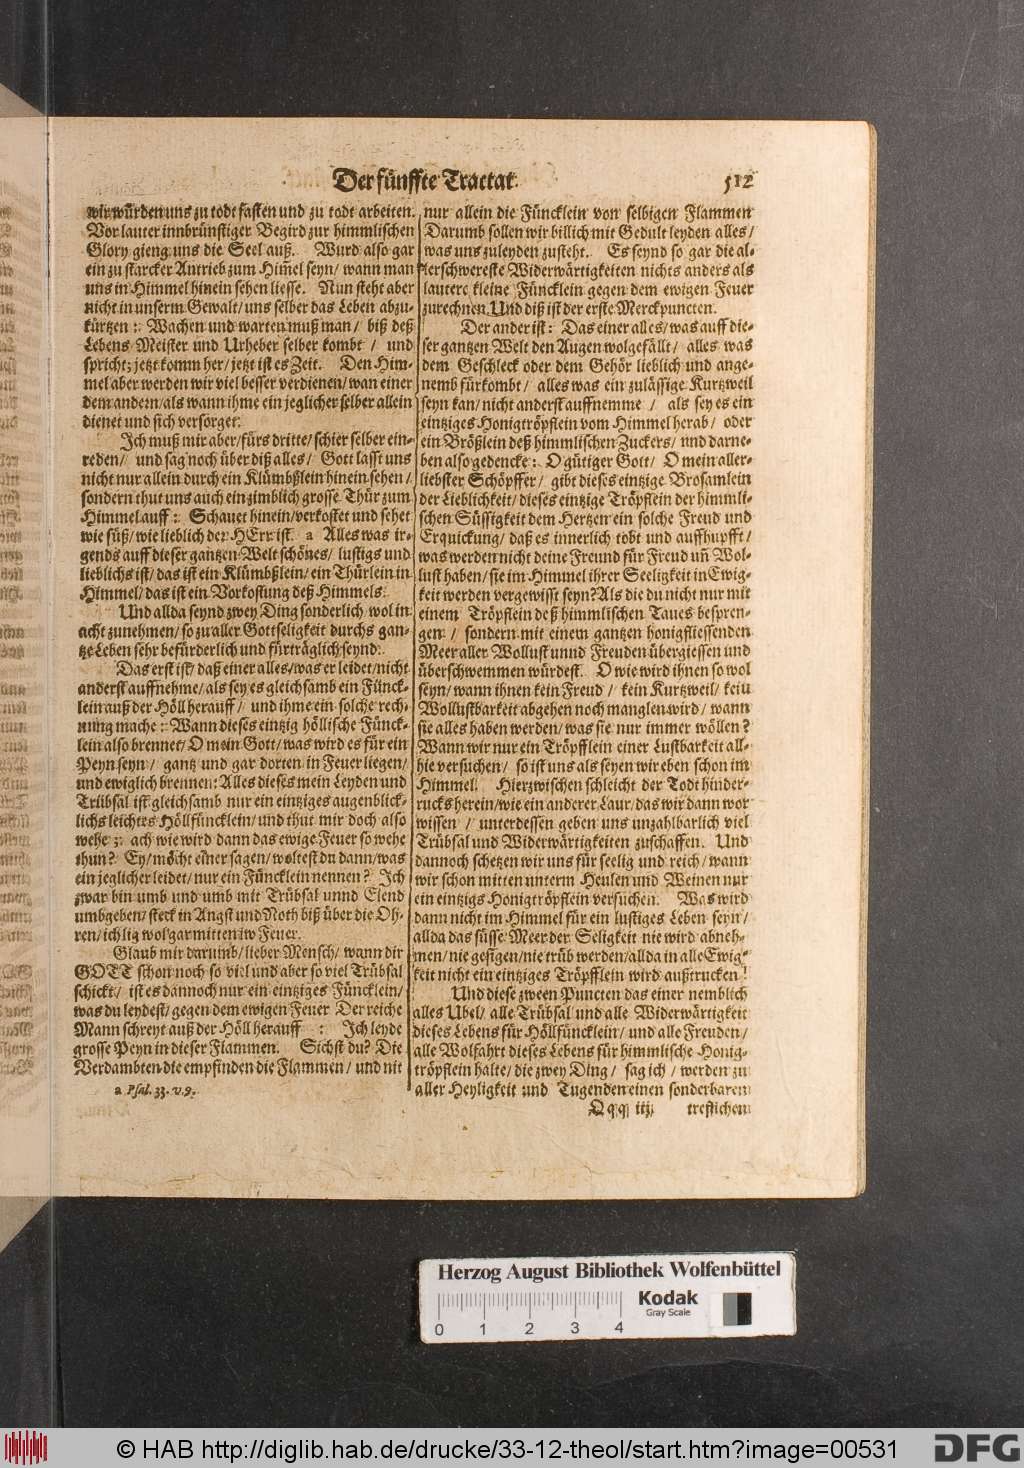 Der fünffte Tractat.
512
wir würden uns zu todt fasten und zu todt arbeiten.
Vor lauter innbrünstiger Begird zur himmlischen
Glory gieng uns die Seel auß. Wurd also gar
ein zu starcker Antrieb zum Him̃el seyn/ wann man
uns in Himmel hinein sehen liesse. Nun steht aber
nicht in unserm Gewalt/ uns selber das Leben abzu-
kürtzen: Wachen und warten muß man/ biß deß
Lebens Meister und Urheber selber kombt/ und
spricht; jetzt komm her/ jetzt ist es Zeit. Den Him-
mel aber werden wir viel besser verdienen/ wan einer
dem andern/ als wann ihme ein jeglicher selber allein
dienet und sich versorget.
Ich muß mir aber/ fürs dritte/ schier selber ein-
reden/ und sag noch über diß alles/ Gott lasst uns
nicht nur allein durch ein Klümbßlein hinein sehen/
sondern thut uns auch ein zimblich grosse Thür zum
Himmel auff: Schauet hinein/ verkostet und sehet
wie süß/ wie lieblich der HErr ist. a Alles was ir-
gends auff dieser gantzen Welt schönes/ lustigs und
lieblichs ist/ das ist ein Klümbßlein/ ein Thürlein in
Himmel/ das ist ein Vorkostung deß Himmels.
Und allda seynd zwey Ding sonderlich wol in
acht zunehmen/ so zu aller Gottseligkeit durchs gan-
tze Leben sehr befürderlich und fürträglich seynd:
Das erst ist/ daß einer alles/ was er leidet/ nicht
anderst auffnehme/ als sey es gleichsamb ein Fünck-
lein auß der Höll herauff/ und ihme ein solche rech-
nung mache: Wann dieses eintzig höllische Fünck-
lein also brennet/ O mein Gott/ was wird es für ein
Peyn seyn/ gantz und gar dorten in Feuer liegen/
und ewiglich brennen: Alles dieses mein Leyden und
Trübsal ist gleichsamb nur ein eintziges augenblick-
lichs leichtes Höllfüncklein/ und thut mir doch also
wehe; ach wie wird dann das ewige Feuer so wehe
thun? Ey/ möcht einer sagen/ woltest du dann/ was
ein jeglicher leidet/ nur ein Füncklein nennen? Ich
zwar bin umb und umb mit Trübsal unnd Elend
umbgeben/ steck in Angst und Noth biß über die Oh-
ren/ ich lig wol gar mitten iw Feuer.
Glaub mir darumb/ lieber Mensch/ wann dir
GOTT schon noch so viel und aber so viel Trübsal
schickt/ ist es dannoch nur ein eintziges Füncklein/
was du leydest/ gegen dem ewigen Feuer Der reiche
Mann schreyt auß der Höll herauff: Ich leyde
grosse Peyn in dieser Flammen. Sichst du? Die
Verdambten die empfinden die Flammen/ und nit
a Psal. 33. v. 9.
nur allein die Füncklein von selbigen Flammen
Darumb sollen wir billich mit Gedult leyden alles/
was uns zuleyden zusteht. Es seynd so gar die al-
lerschwereste Widerwärtigkeiten nichts anders als
lautere kleine Füncklein gegen dem ewigen Feuer
zurechnen. Und diß ist der erste Merckpuncten.
Der ander ist: Das einer alles/ was auff die-
ser gantzen Welt den Augen wolgefällt/ alles was
dem Geschleck oder dem Gehör lieblich und ange-
nemb fürkombt/ alles was ein zulässige Kurtzweil
seyn kan/ nicht anderst auffnemme/ als sey es ein
eintziges Honigtröpflein vom Himmel herab/ oder
ein Brößlein deß himmlischen Zuckers/ und darne-
ben also gedencke: O gütiger Gott/ O mein aller-
liebster Schöpffer/ gibt dieses eintzige Brosamlein
der Lieblichkeit/ dieses eintzige Tröpflein der himmli-
schen Süssigkeit dem Hertzen ein solche Freud und
Erquickung/ daß es innerlich tobt und auffhupfft/
was werden nicht deine Freund für Freud uñ Wol-
lust haben/ sie im Himmel ihrer Seeligkeit in Ewig-
keit werden vergewisst seyn? Als die du nicht nur mit
einem Tröpflein deß himmlischen Taues bespren-
gen/ sondern mit einem gantzen honigfliessenden
Meer aller Wollust unnd Freuden übergiessen und
überschwemmen würdest. O wie wird ihnen so wol
seyn/ wann ihnen kein Freud/ kein Kurtzweil/ keiu
Wollustbarkeit abgehen noch manglen wird/ wann
sie alles haben werden/ was sie nur immer wöllen?
Wann wir nur ein Tröpfflein einer Lustbarkeit all-
hie versuchen/ so ist uns als seyen wir eben schon im
Himmel. Hierzwischen schleicht der Todt hinder-
rucks herein/ wie ein anderer Laur/ das wir dann wor
wissen/ unterdessen geben uns unzahlbarlich viel
Trübsal und Widerwärtigkeiten zuschaffen. Und
dannoch schetzen wir uns für seelig und reich/ wann
wir schon mitten unterm Heulen und Weinen nur
ein eintzigs Honigtröpflein versuchen. Was wird
dann nicht im Himmel für ein lustiges Leben seyn/
allda das süsse Meer der Seligkeit nie wird abneh-
men/ nie gesigen/ nie trüb werden/ allda in alle Ewig-
keit nicht ein eintziges Tröpfflein wird außtrucken!
Und diese zween Puncten das einer nemblich
alles Ubel/ alle Trübsal und alle Widerwärtigkeit
dieses Lebens für Höllfüncklein/ und alle Freuden/
alle Wolfahrt dieses Lebens für himmlische Honig-
tröpflein halte/ die zwey Ding/ sag ich/ werden zu
aller Heyligkeit und Tugenden einen sonderbaren
Qqq iij. treflichen
Herzog August Bibliothek Wolfenbüttel
Kodak
Gray Scale
0 1 2 3 4
© HAB http://diglib.hab.de/drucke/33-12-theol/start.htm?image=00531
DFG